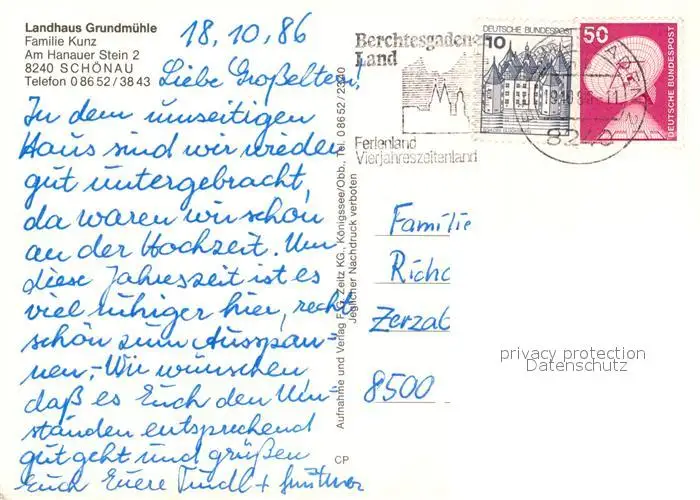 Landhaus Grundmühle
Familie Kunz
Am Hanauer Stein 2
8240 SCHÖNAU
Telefon 0 86 52 / 38 43
18.10.86
Liebe Großeltern!
In dem umseitigen
Haus sind wir wieder
gut untergebracht,
da waren wir schon
an der Hochzeit. Um
diese Jahreszeit ist es
viel ruhiger hier, recht
schön zum Ausspan-
nen,- Wir wünschen
daß es Euch den Um-
ständen entsprechend
gut geht und grüßen
Euch Euere Tundl +
Aufnahme und Verlag F. G. Zeitz KG., Königssee/Obb., Tel. 0 86 52 / 23 40
Jeglicher Nachdruck verboten
CP
Berchtesgadener
Land
Ferienland
Vierjahreszeitenland
10
DEUTSCHE BUNDESPOST
50
DEUTSCHE BUNDESPOST
8240
Familie
Richa
Zerzab
8500
privacy protection
Datenschutz